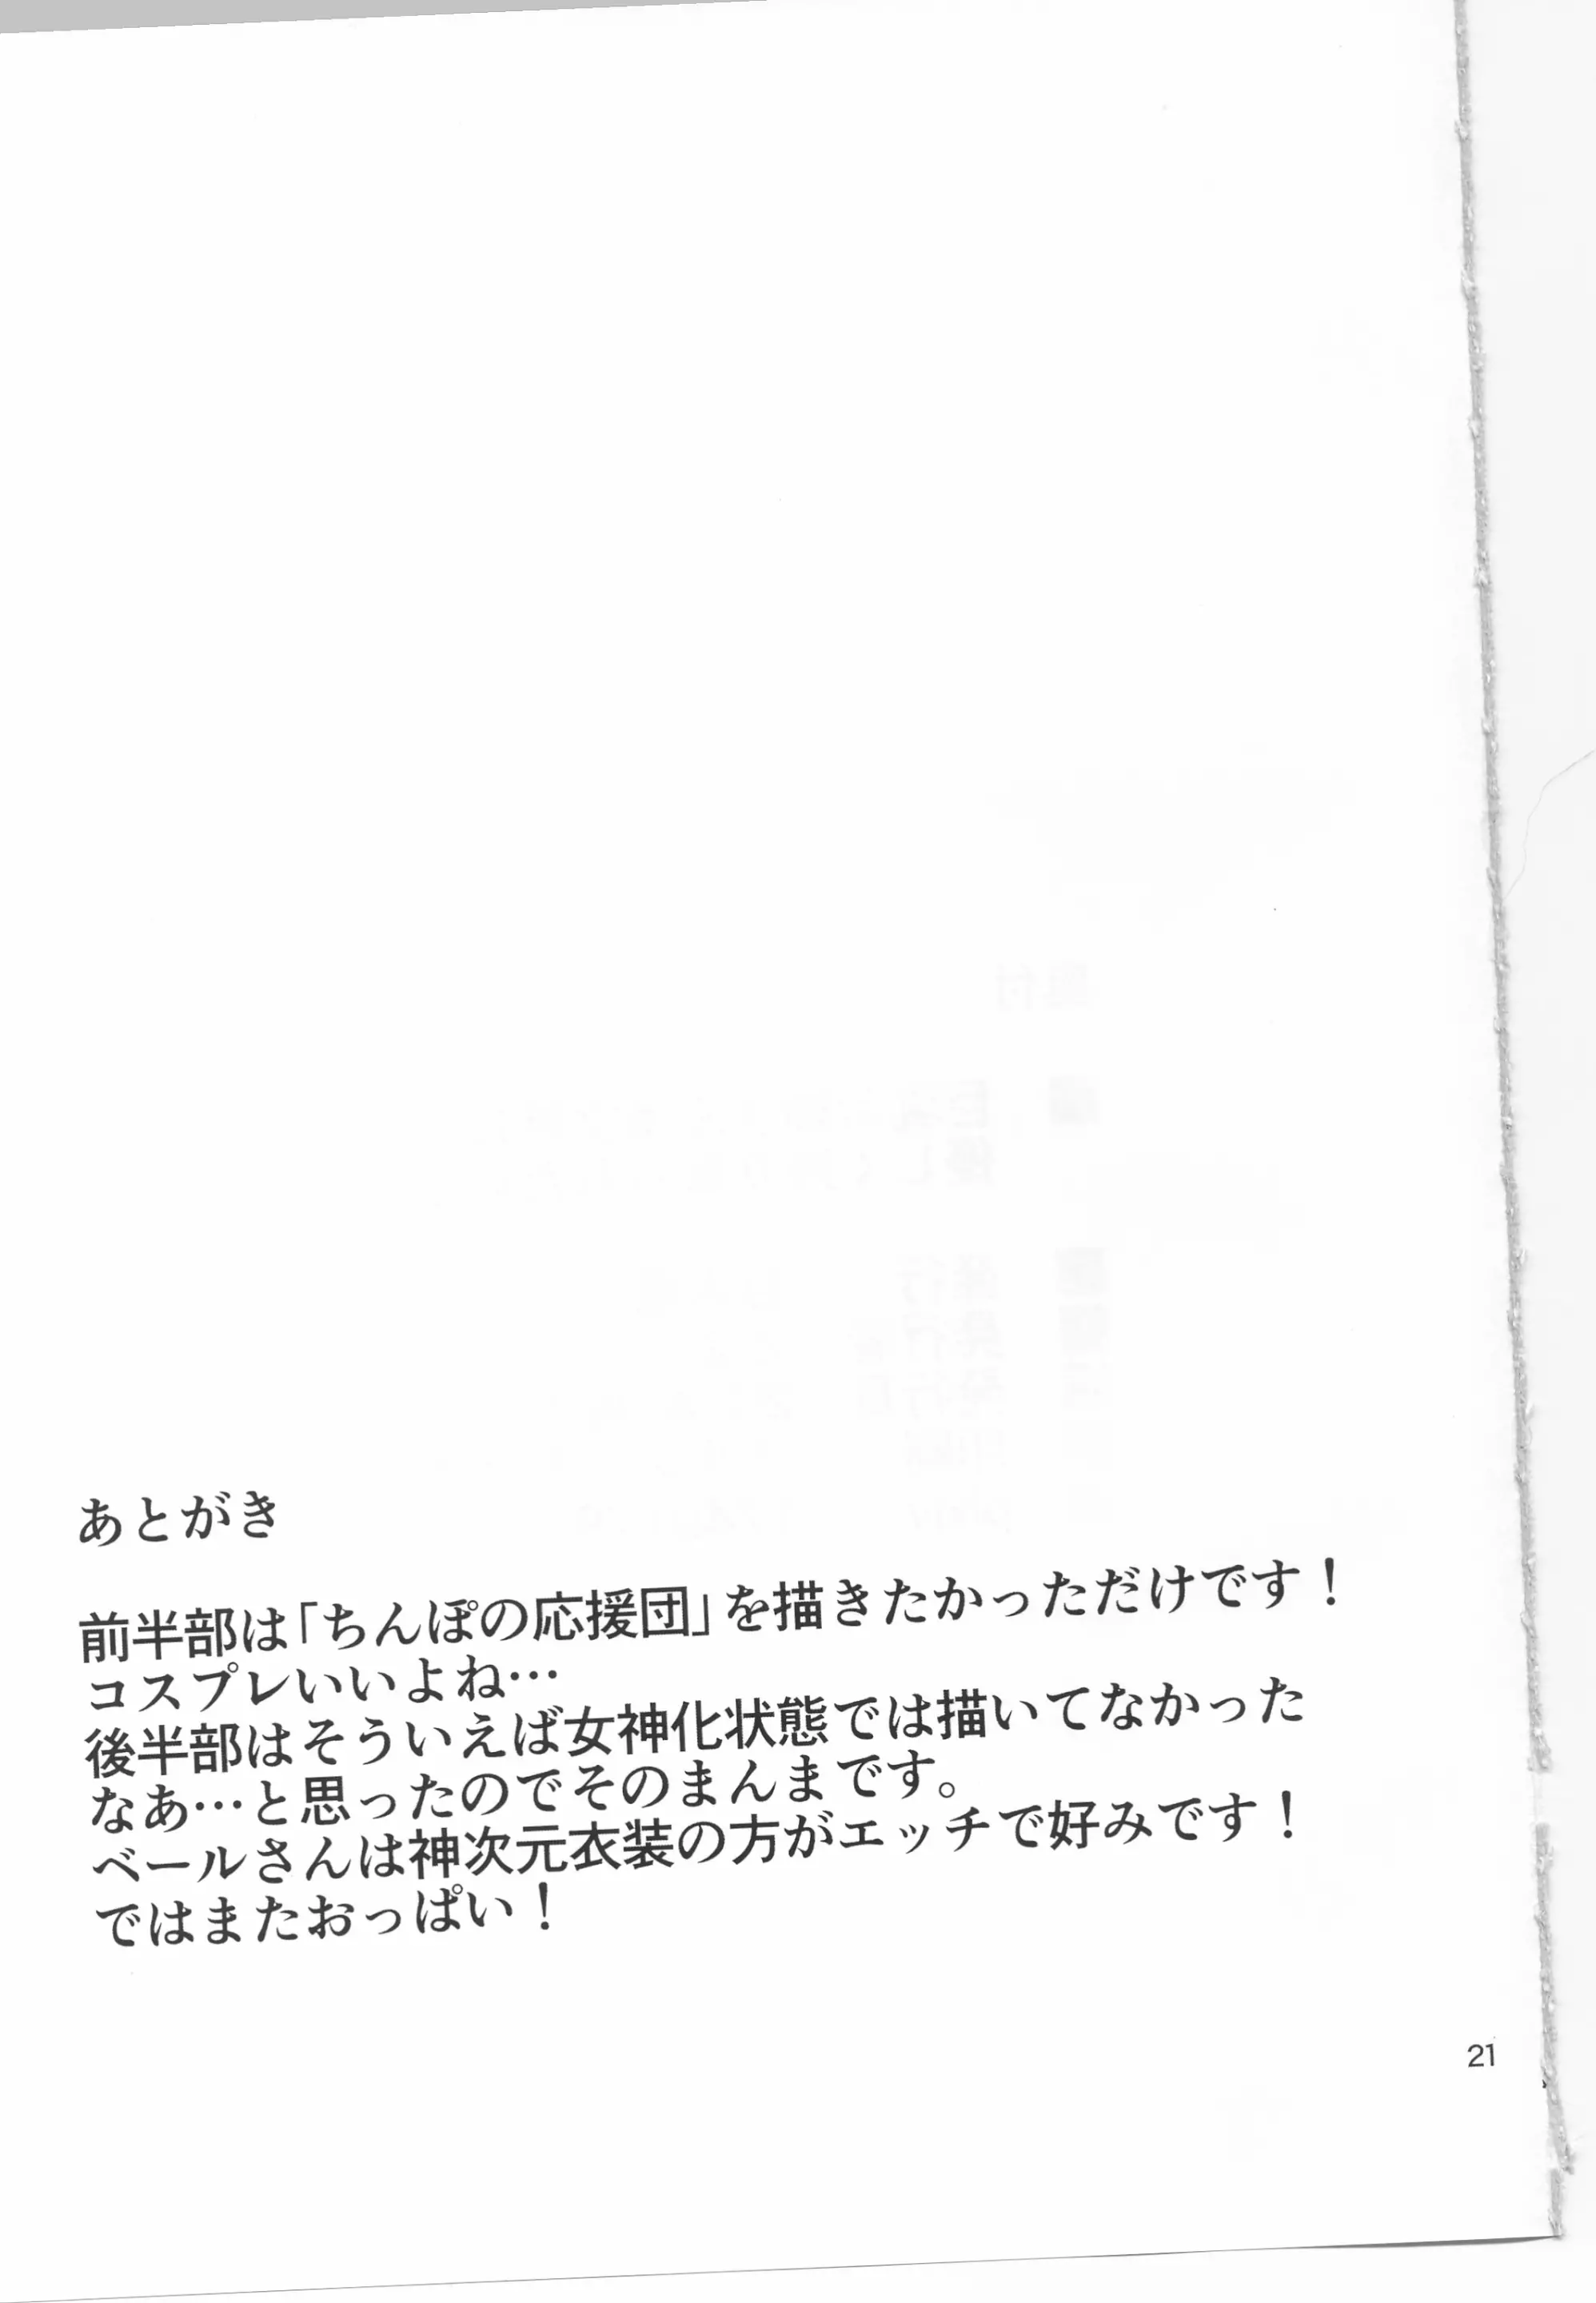 あとがき
前半部は「ちんぽの応援団」を描きたかっただけです！
コスプレいいよね…
後半部はそういえば女神化状態では描いてなかった
なあ…と思ったのでそのまんまです。
ベールさんは神次元衣装の方がエッチで好みです！
ではまたおっぱい！
21